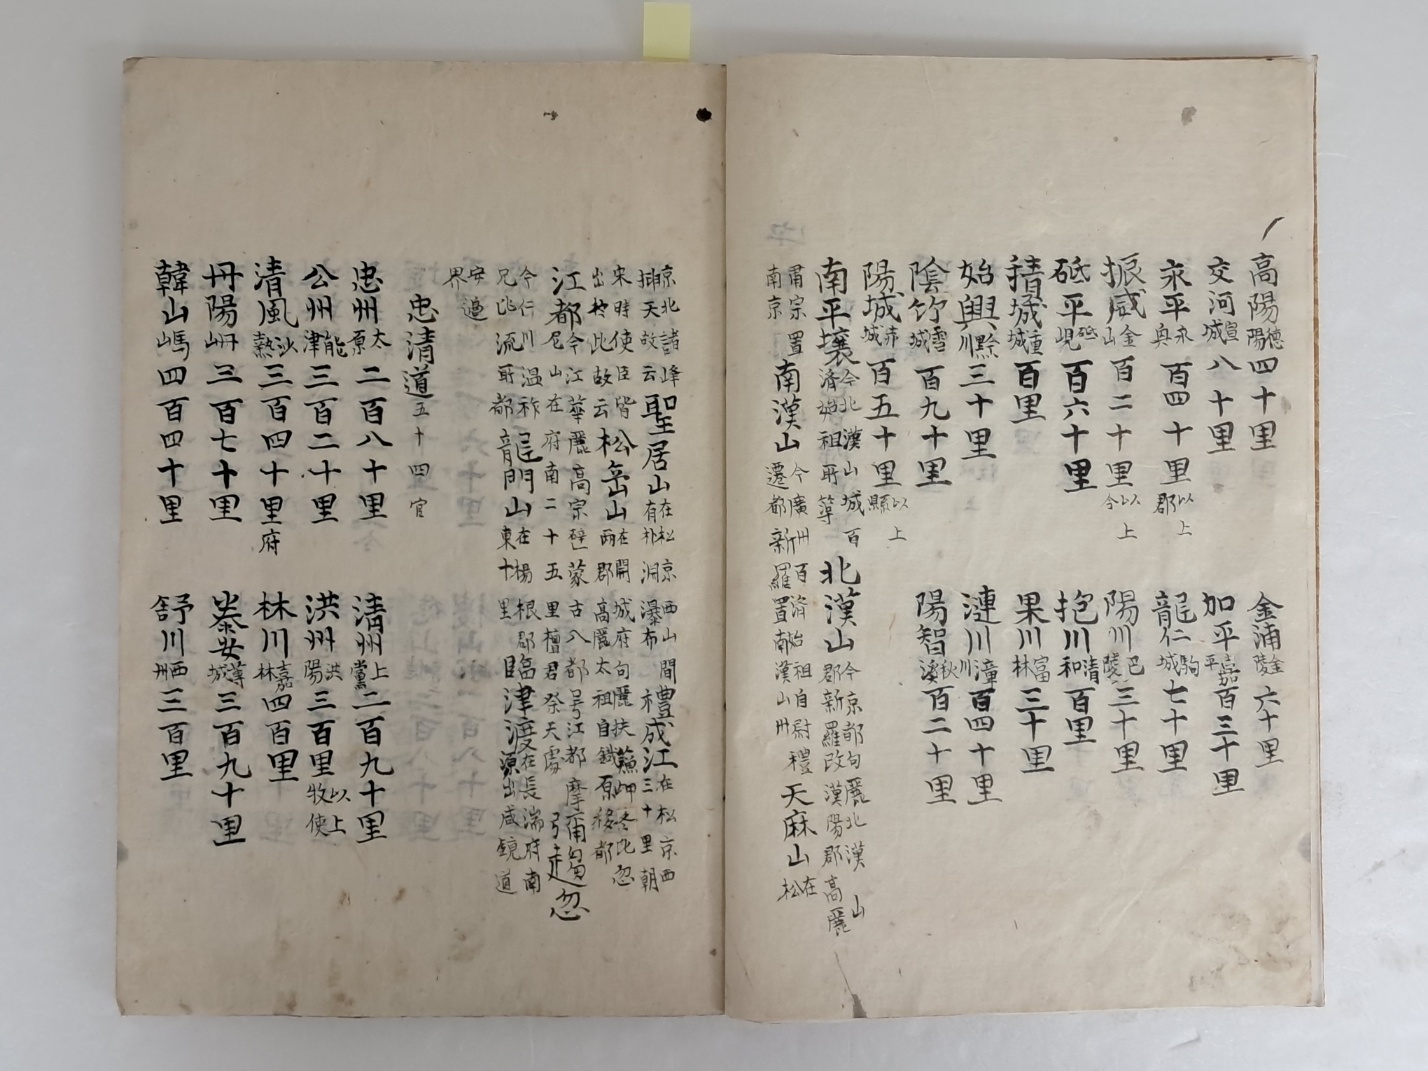 高陽德陽四十里 金浦金陵六十里
交河宣城八十里 加平嘉平百三十里
永平永興百四十里郡以上 龍仁駒城七十里
振威金山百二十里令以上 陽川巴陵三十里
砥平砥峴百六十里 抱川清和百里
積城重城百里 果川富林三十里
始興黔川三十里 漣川漳川百四十里
陰竹雪城百九十里 陽智秋溪百二十里
陽城赤城百五十里縣以上
南平壤今北漢山城百濟始祖所築 北漢山今京都句麗北漢山郡新羅改漢陽郡高麗
肅宗置南京 南漢山今廣州百濟始祖自尉禮遷都新羅置南漢山州 天麻山在松
京北諸峰揷天故云 聖居山在松京西山間有朴淵瀑布 禮成江在松京西三十里朝
宋時使臣皆出於此故云 松岳山在開城府句麗扶蘇岬冬比忽兩郡高麗太祖自鐵原移都
江都今江華麗高宗壁蒙古八都号江都 摩甫刍尼山在府南二十五里檀君祭天處 弓走忽
今仁川温祚兄沸流所都 龍門山在楊根郡東十里 臨津渡在長湍府南源出咸鏡道
安邊界
忠清道五十四官
忠州太原二百八十里 清州上黨二百九十里
公州能津三百二十里 洪州洪陽三百里牧使以上
清風沙熱三百四十里府 林川嘉林四百里
丹陽丹山三百七十里 泰安蓴城三百九十里
韓山馬山四百四十里 舒川西州三百里